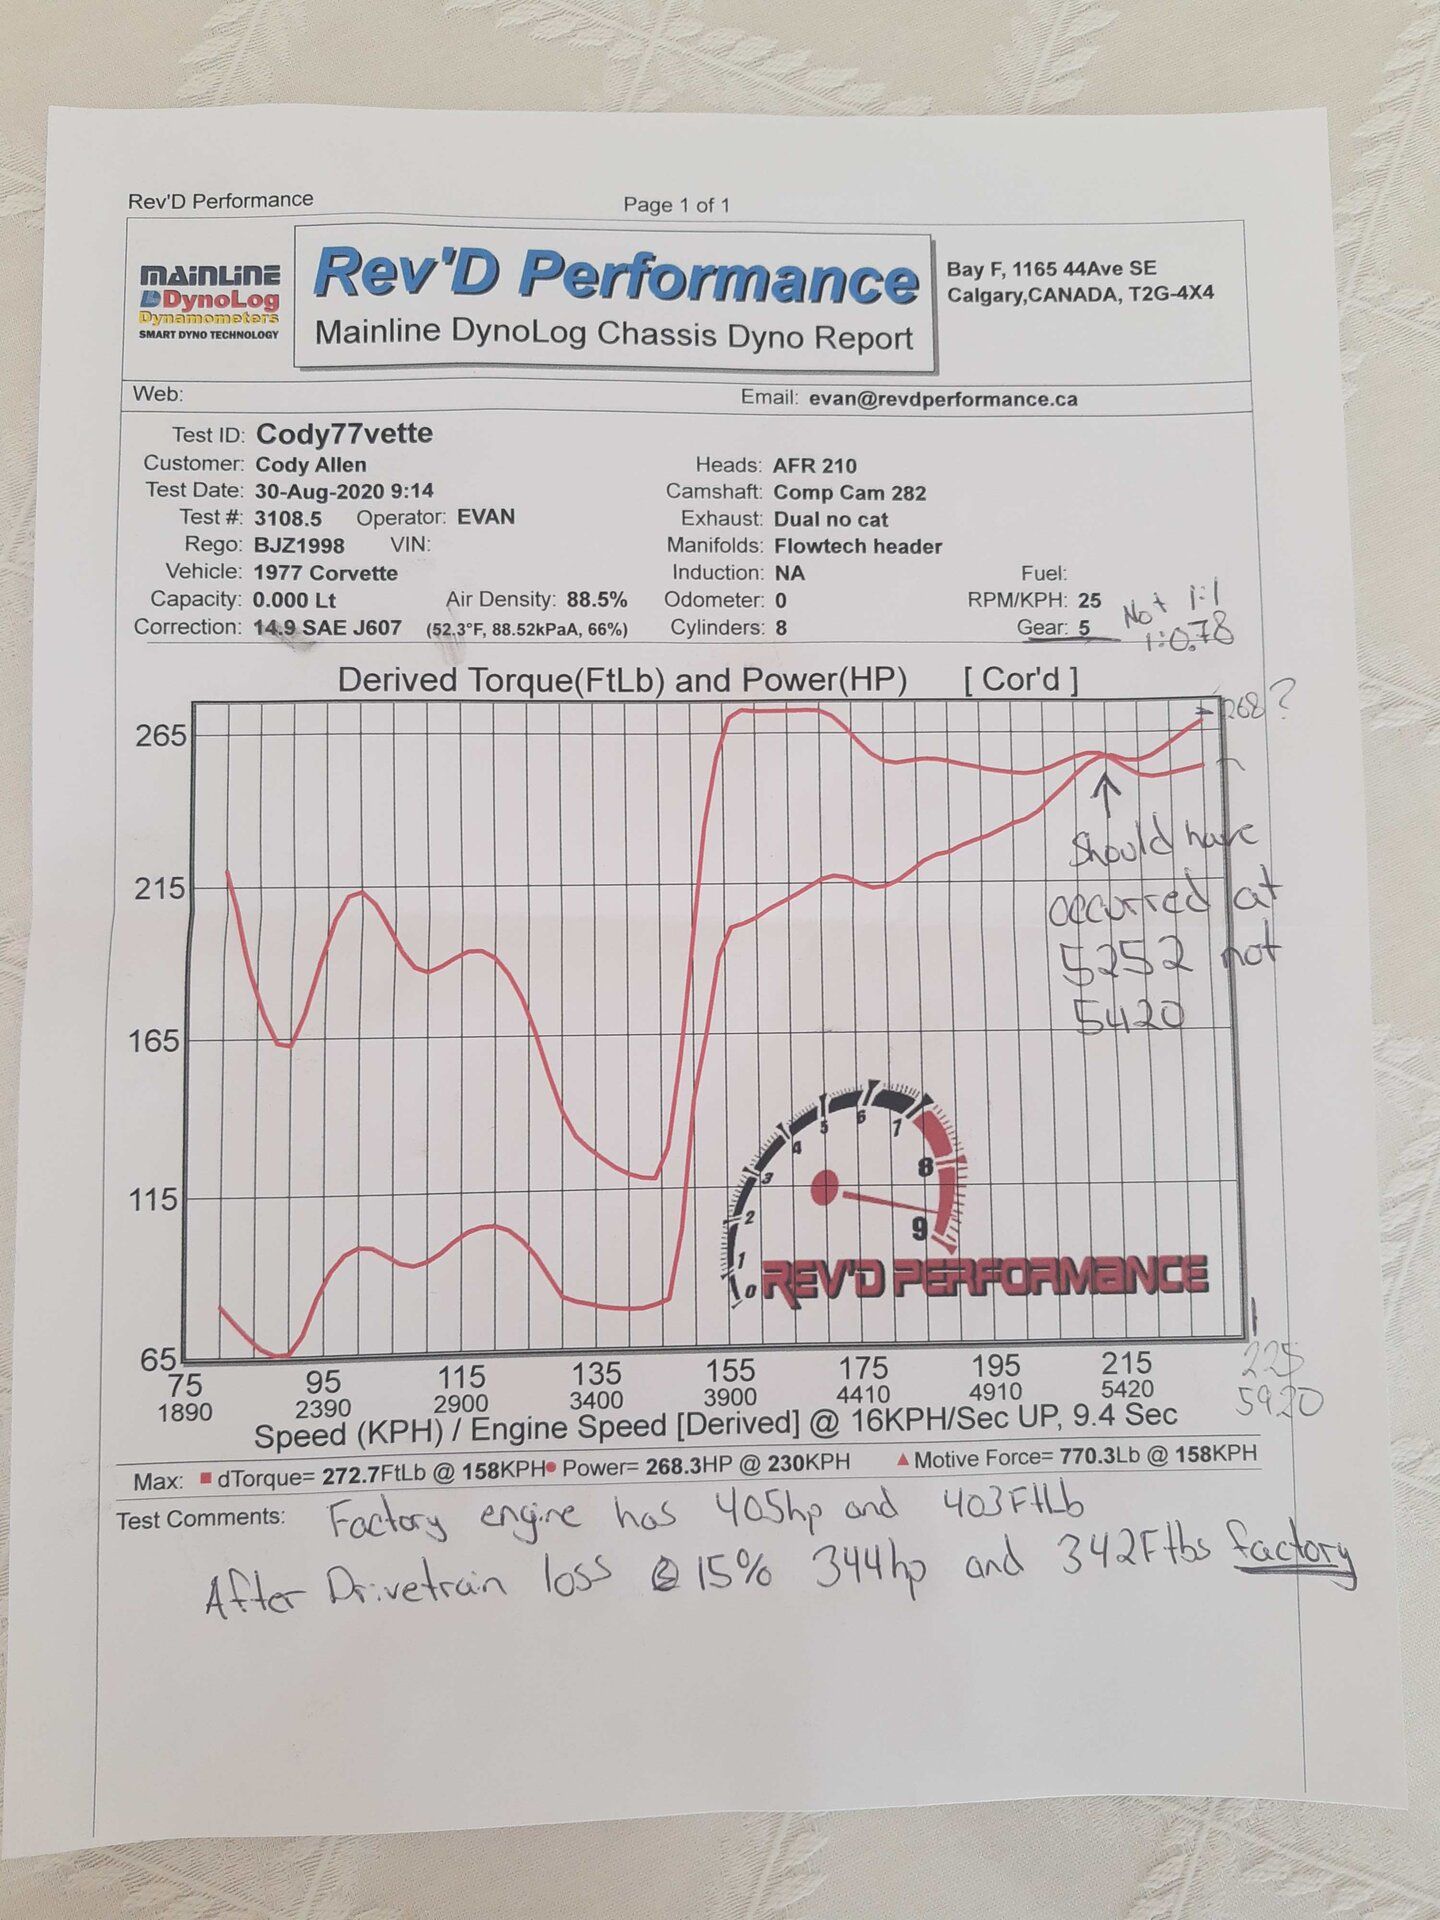 Rev'D Performance Page 1 of 1
MAINLINE
DynoLog
Dynamometers
SMART DYNO TECHNOLOGY
Rev'D Performance
Mainline DynoLog Chassis Dyno Report
Bay F, 1165 44Ave SE
Calgary,CANADA, T2G-4X4
Web: Email: evan@revdperformance.ca
Test ID: Cody77vette
Customer: Cody Allen Heads: AFR 210
Test Date: 30-Aug-2020 9:14 Camshaft: Comp Cam 282
Test #: 3108.5 Operator: EVAN Exhaust: Dual no cat
Rego: BJZ1998 VIN: Manifolds: Flowtech header
Vehicle: 1977 Corvette Induction: NA Fuel:
Capacity: 0.000 Lt Air Density: 88.5% Odometer: 0 RPM/KPH: 25
Correction: 14.9 SAE J607 (52.3°F, 88.52kPaA, 66%) Cylinders: 8 Gear: 5
Not 1:1
1:0.78
Derived Torque(FtLb) and Power(HP) [ Cor'd ]
268?
265
215
165
115
65
Should have
occurred at
5252 not
5420
0 1 2 3 4 5 6 7 8 9
REV'D PERFORMANCE
75 95 115 135 155 175 195 215
1890 2390 2900 3400 3900 4410 4910 5420
225
5920
Speed (KPH) / Engine Speed [Derived] @ 16KPH/Sec UP, 9.4 Sec
Max: dTorque= 272.7FtLb @ 158KPH Power= 268.3HP @ 230KPH Motive Force= 770.3Lb @ 158KPH
Test Comments: Factory engine has 405hp and 403FtLb
After Drivetrain loss @ 15% 344hp and 342Ftlbs factory